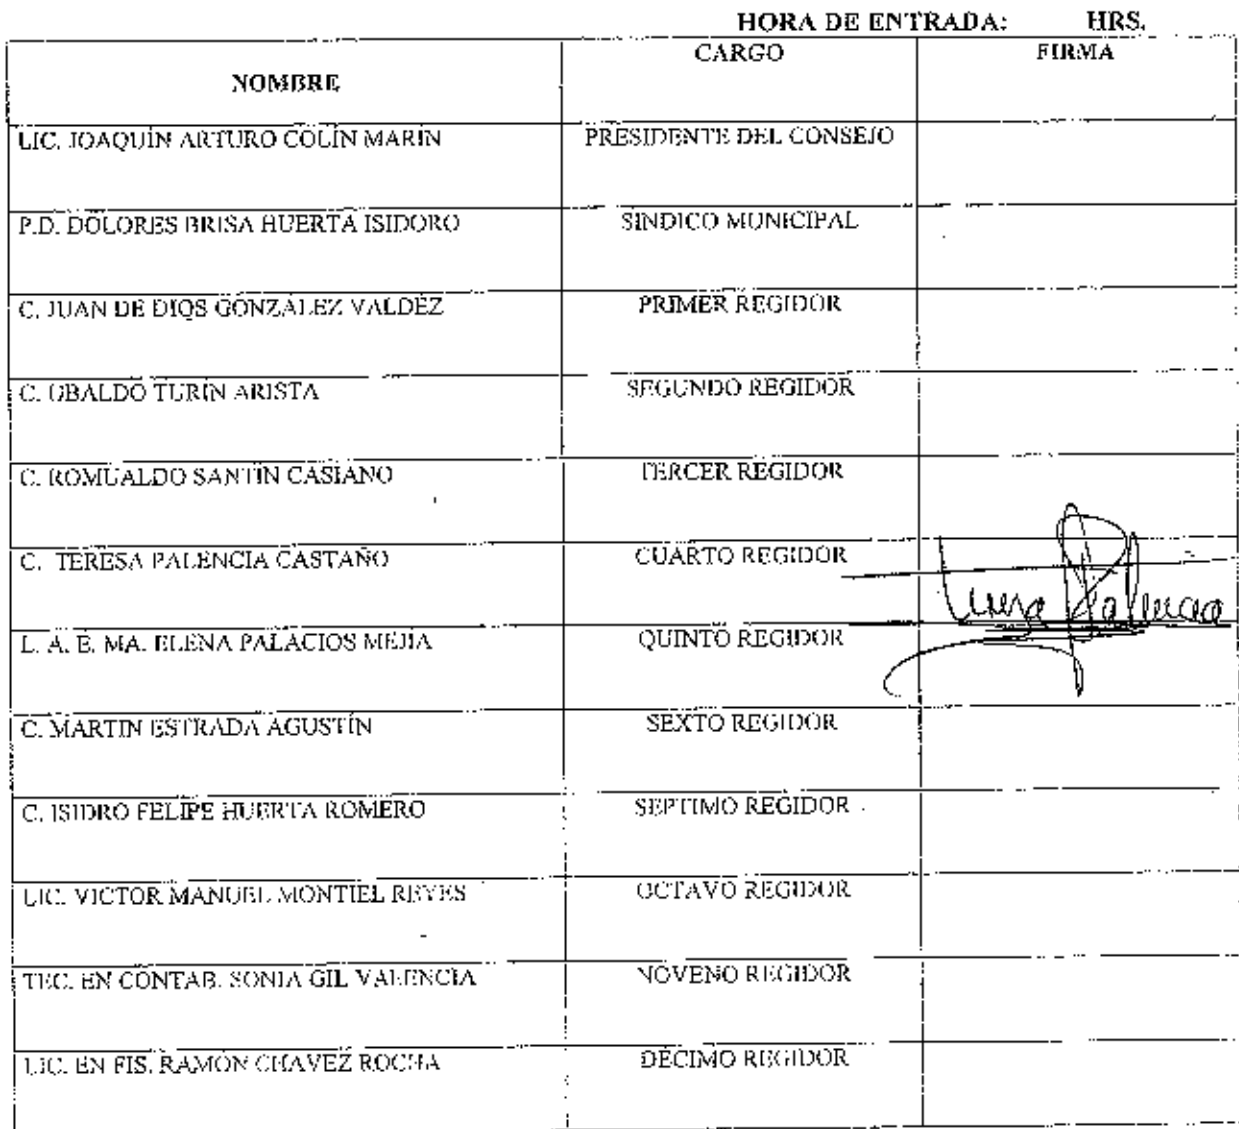 HORA DE ENTRADA: HRS.
NOMBRE CARGO FIRMA
LIC. JOAQUÍN ARTURO COLÍN MARÍN PRESIDENTE DEL CONSEJO
P.D. DOLORES BRISA HUERTA ISIDORO SINDICO MUNICIPAL
C. JUAN DE DIOS GONZÁLEZ VALDÉZ PRIMER REGIDOR
C. UBALDO TURÍN ARISTA SEGUNDO REGIDOR
C. ROMUALDO SANTÍN CASIANO TERCER REGIDOR
C. TERESA PALENCIA CASTAÑO CUARTO REGIDOR
L. A. E. MA. ELENA PALACIOS MEJÍA QUINTO REGIDOR
C. MARTIN ESTRADA AGUSTÍN SEXTO REGIDOR
C. ISIDRO FELIPE HUERTA ROMERO SEPTIMO REGIDOR
LIC. VICTOR MANUEL MONTIEL REYES OCTAVO REGIDOR
TEC. EN CONTAB. SONIA GIL VALENCIA NOVENO REGIDOR
LIC. EN FIS. RAMÓN CHAVEZ ROCHA DÉCIMO REGIDOR